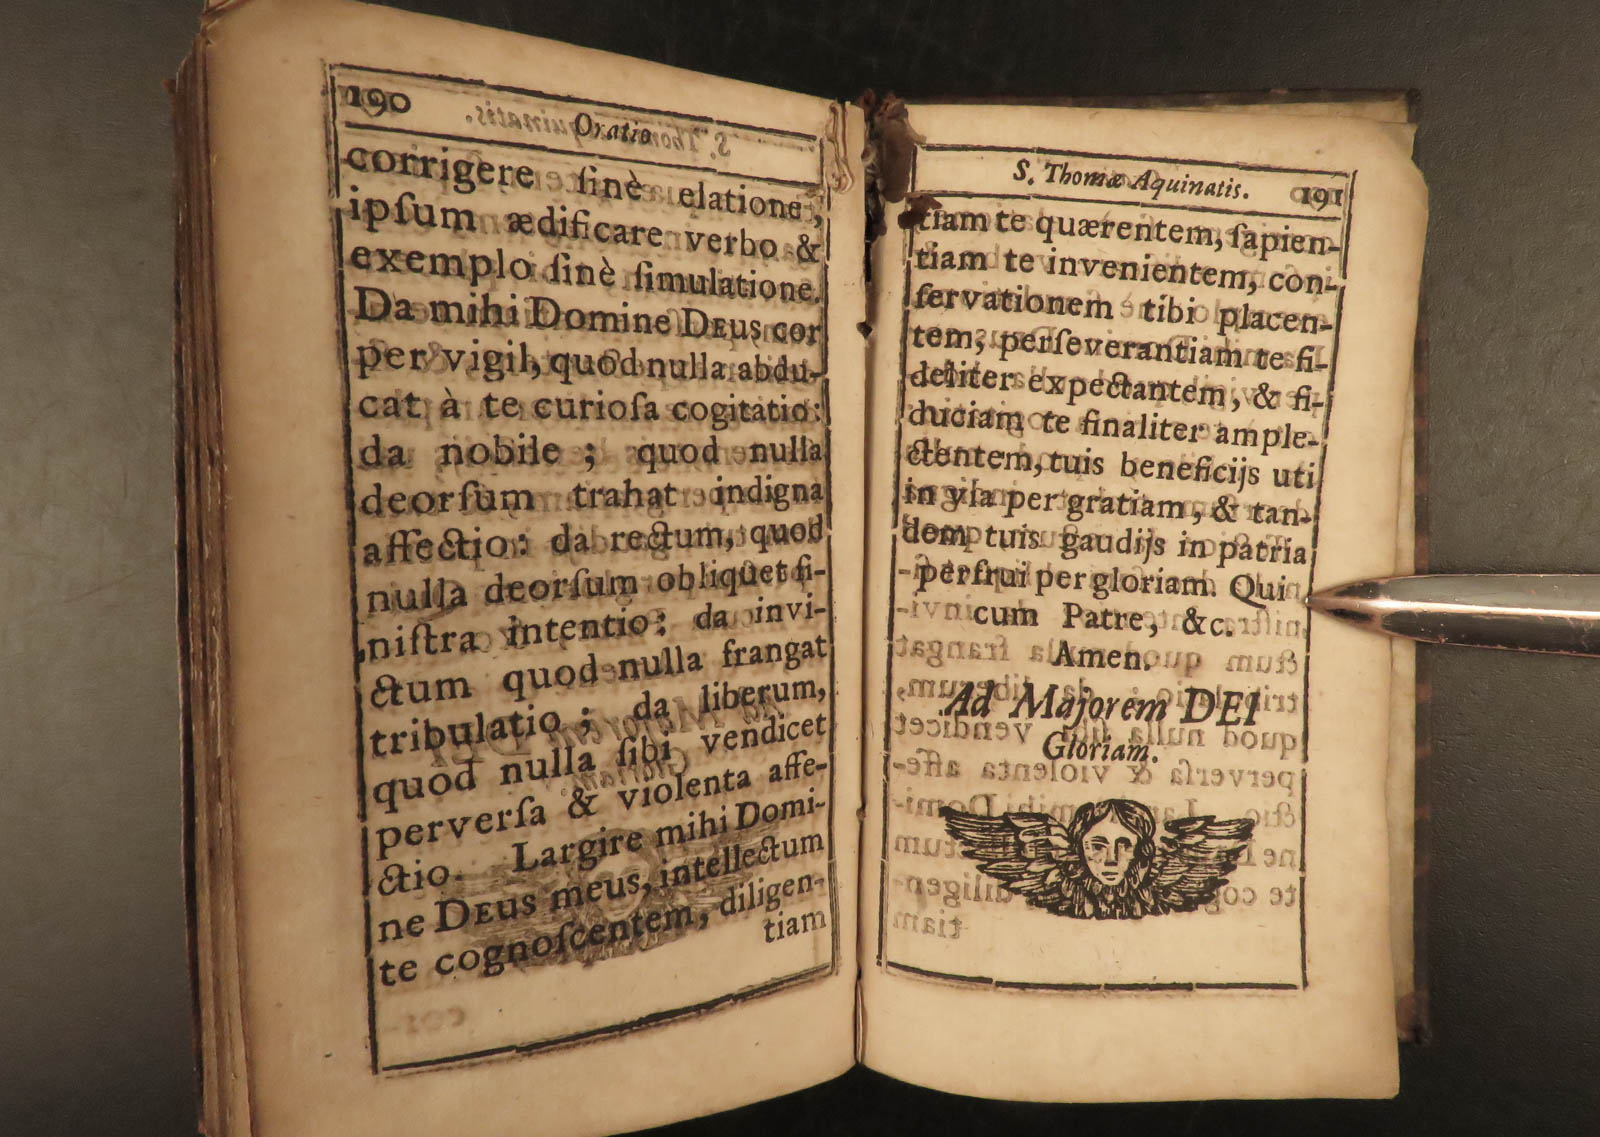 190
Oratio
corrigere ſinè elatione,
ipſum ædificare verbo &
exemplo ſinè ſimulatione.
Da mihi Domine DEUS cor
per vigil, quod nulla abdu-
cat à te curioſa cogitatio:
da nobile ; quod nulla
deorſum trahat indigna
affectio: da rectum, quod
nulla deorſum obliquet ſi-
niſtra intentio: da invi-
ctum quod nulla frangat
tribulatio ; da liberum,
quod nulla ſibi vendicet
perverſa & violenta affe-
ctio. Largire mihi Domi-
ne DEUS meus, intellectum
te cognoſcentem, diligen-
tiam
S. Thomæ Aquinatis. 191
tiam te quærentem, ſapien-
tiam te invenientem, con-
ſervationem tibi placen-
tem, perſeverantiam te fi-
deliter expectantem, & fi-
duciam te finaliter ample-
ctentem, tuis beneficijs uti
in via per gratiam, & tan-
dem tuis gaudijs in patria
perfrui per gloriam. Qui
cum Patre, &c.
Amen.
Ad Majorem DEI
Gloriam.